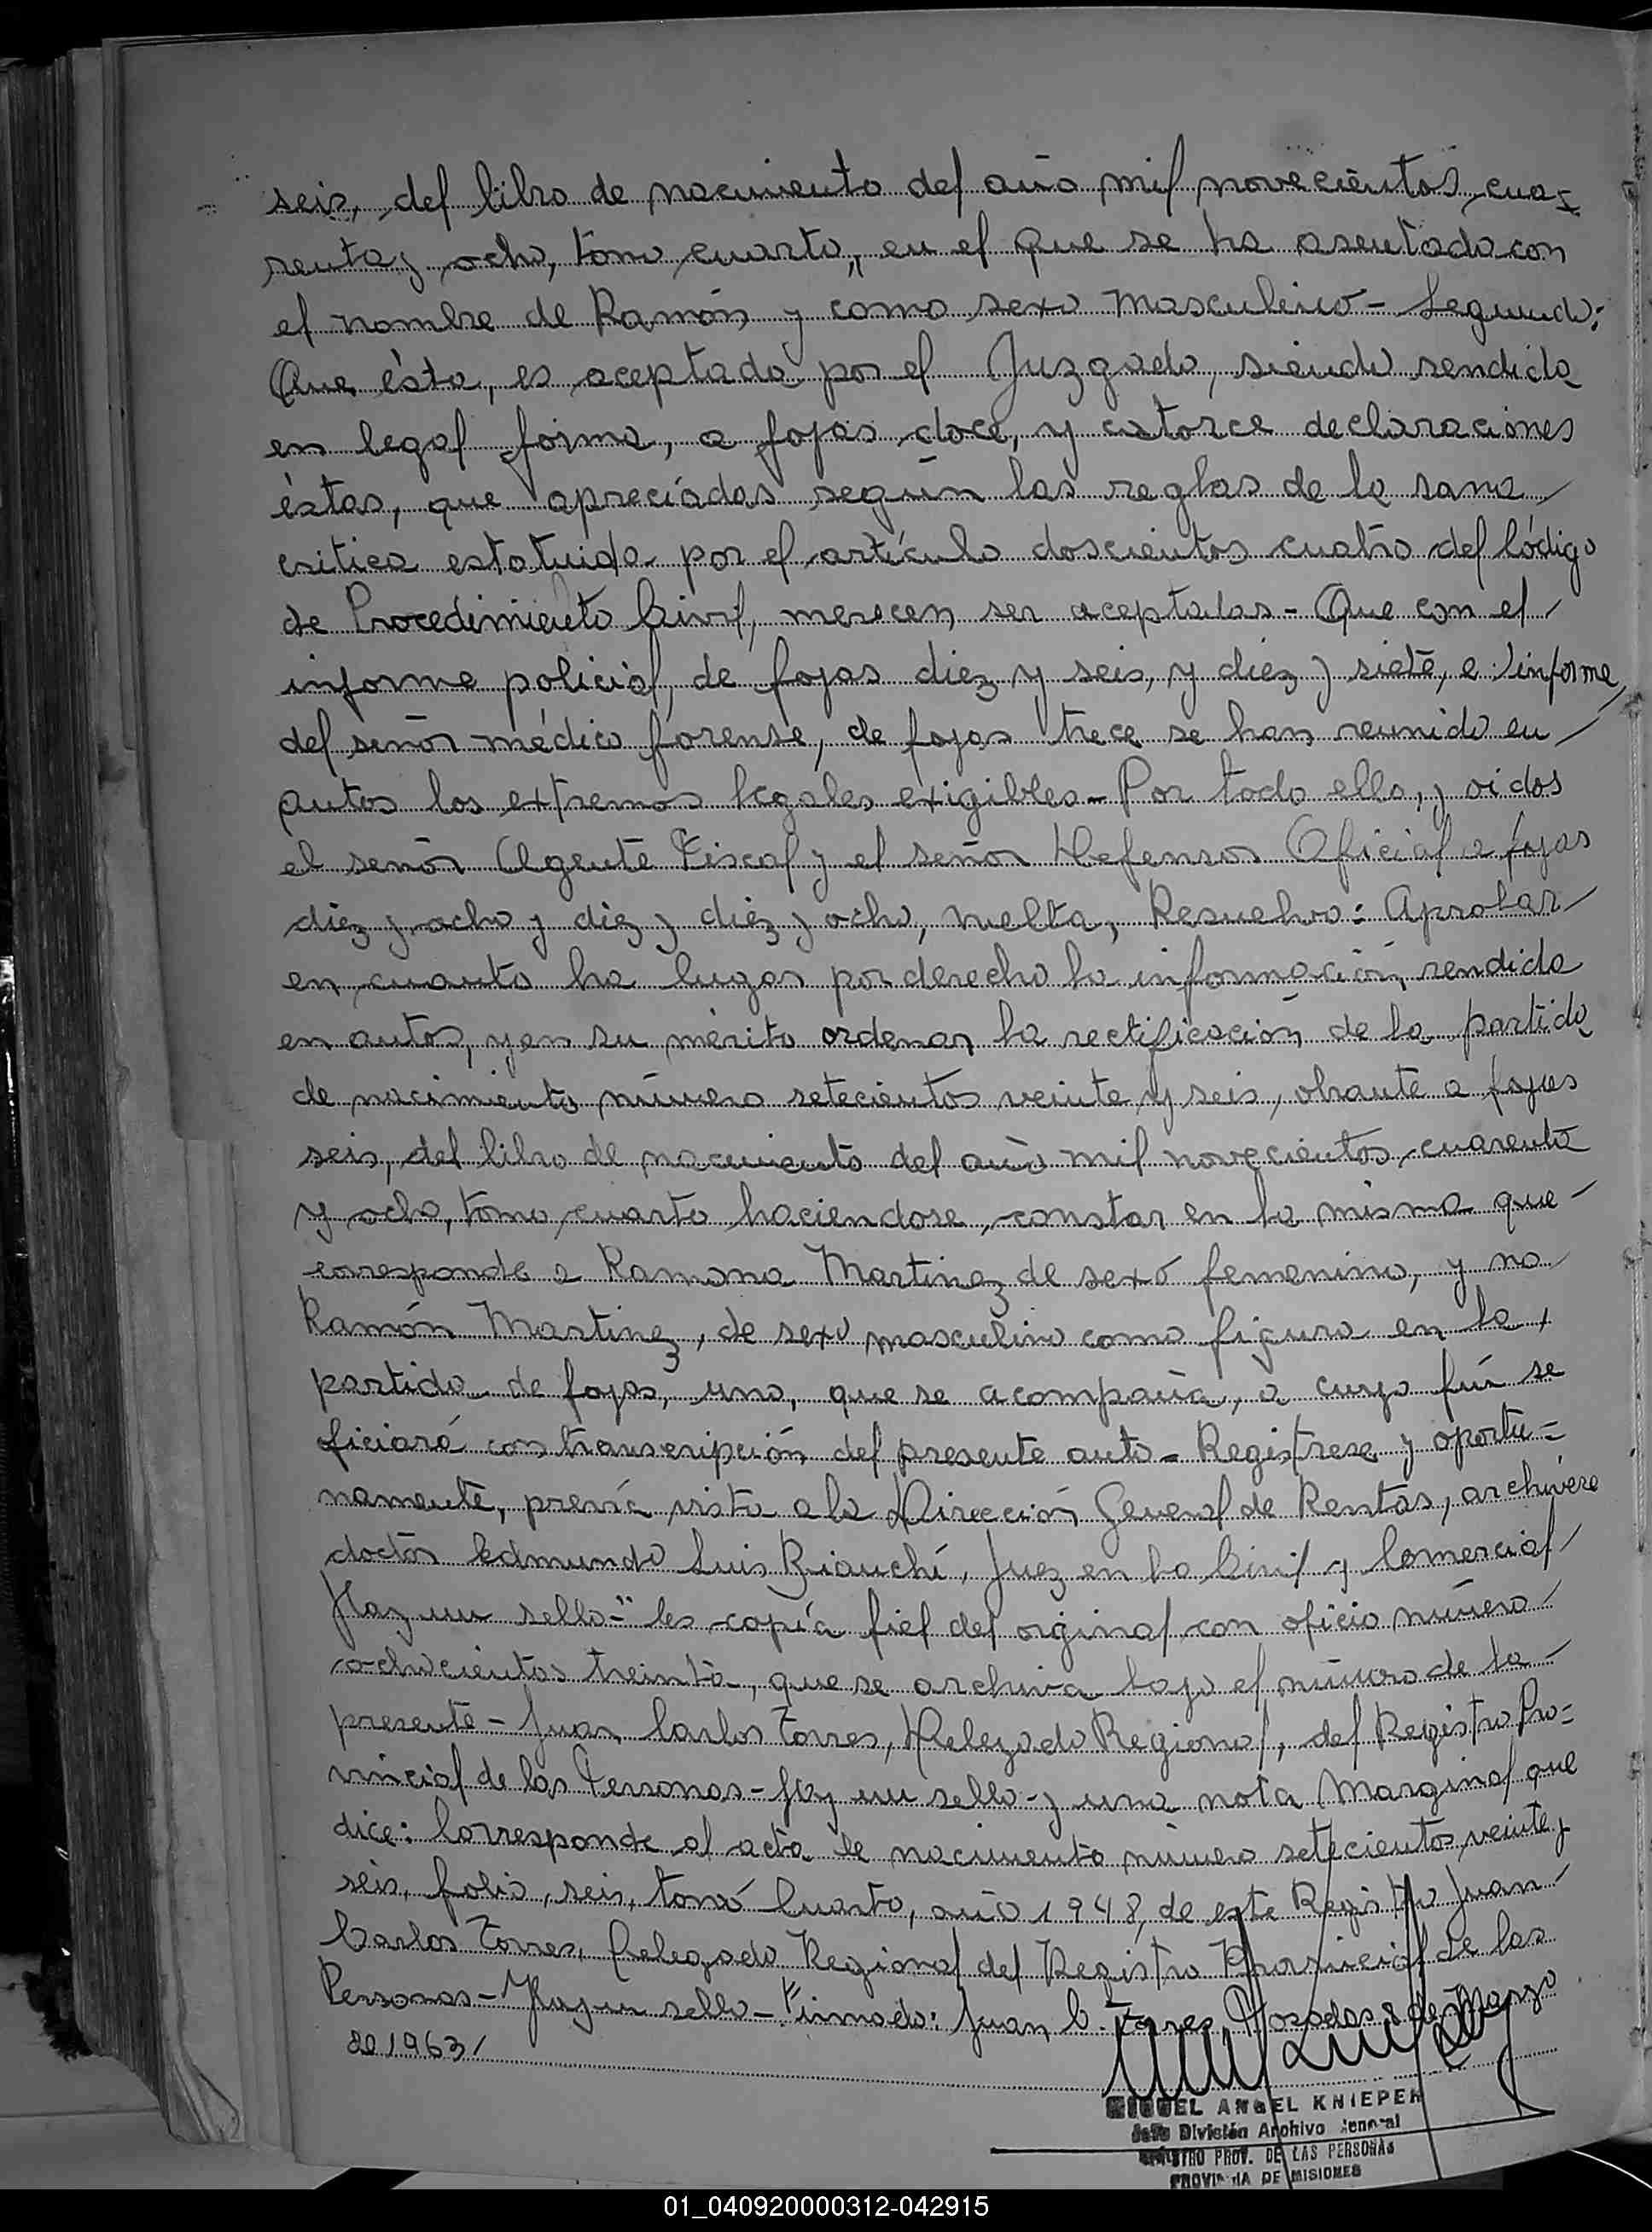 seis, del libro de nacimiento del año mil novecientos cua=
renta y ocho, tomo cuarto, en el que se ha asentado con
el nombre de Ramón y como sexo masculino - Segundo:
Que ésta, es aceptada por el Juzgado, siendo rendida
en legal forma, a fojas doce, y catorce declaraciones
éstas, que apreciadas según las reglas de la sana /
critica estatuida por el artículo doscientos cuatro del Código
de Procedimiento Civil, merecen ser aceptadas - Que con el /
informe policial, de fojas diez y seis, y diez y siete, e informe,
del señor médico forense, de fojas trece se han reunido en /
autos los extremos legales exigibles - Por todo ello, y oidos
el señor Agente Fiscal y el señor Defensor Oficial a fojas
diez y ocho y diez y diez y ocho, vuelta, Resuelvo: Aprobar /
en cuanto ha lugar por derecho la información, rendida
en autos, y en su mérito ordenar la rectificación de la partida
de nacimiento número setecientos veinte y seis, obrante a fojas
seis, del libro de nacimiento del año mil novecientos cuarenta
y ocho, tomo cuarto haciendose, constar en la misma que -
corresponde a Ramona Martinez de sexo femenino, y no
Ramón Martinez, de sexo masculino como figura en la,
partida de fojas, uno, que se acompaña, a cuyo fin se
oficiará con transcripción del presente auto - Registrese y oportu=
namente, previa vista a la Dirección General de Rentas, archivese
doctor Edmundo Luis Bianchi, Juez en lo Civil y Comercial /
Hay un sello -" Es copia fiel del orginal con oficio número /
ochocientos treinta, que se archiva bajo el número de la -
presente - Juan Carlos Torres, Delegado Regional, del Registro Pro=
vincial de las Personas - Hay un sello - y una nota Marginal que
dice: Corresponde al acta de nacimiento número setecientos, veinte y
seis, folio, seis, tomo Cuarto, año 1948, de este Registro Juan
Carlos Torres, Delegado Regional del Registro Provincial de las
Personas - Hay un sello - Firmado: Juan C. Torres Posadas 8 de Marzo
de 1963 /
MIGUEL ANGEL KNIEPER
Jefe División Archivo General
REGISTRO PROV. DE LAS PERSONAS
PROVINCIA DE MISIONES
01_040920000312-042915